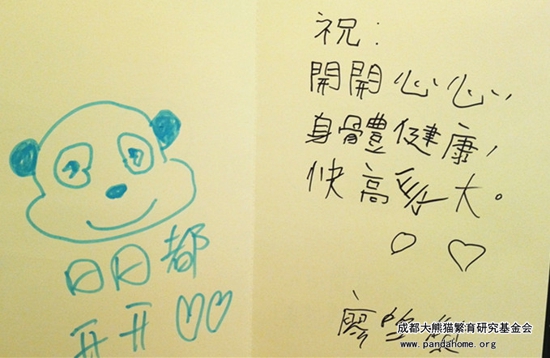 日日都
开开
祝:
開開心心,
身體健康,
快高長大。
廖
成都大熊猫繁育研究基金会
www.pandahome.org